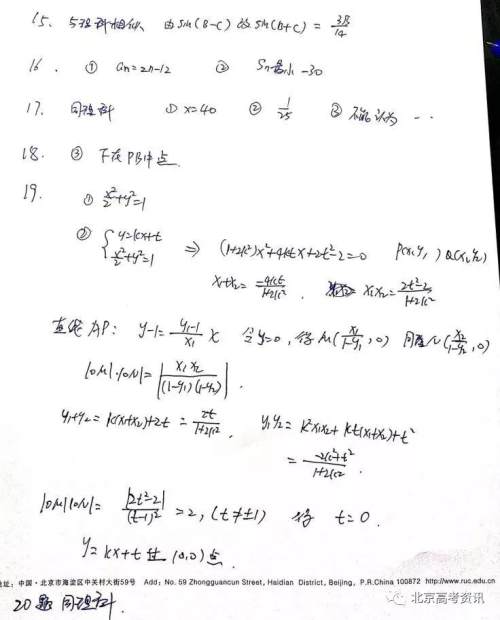 15. 与理科相似 由sin(B-C) 改 sin(B+C) = 3√3/14
16. ① an=2n-12 ② Sn最小 -30
17. 同理科 ① x=40 ② 1/25 ③ 不能认为 ...
18. ③ F在PB中点
19. ① x²/2+y²=1
② { y=kx+t x²/2+y²=1 ⇒ (1+2k²)x²+4ktx+2t²-2=0 P(x₁,y₁) Q(x₂,y₂)
x₁+x₂= -4kt/1+2k², x₁x₂= 2t²-2/1+2k²
直线AP: y-1= y₁-1/x₁ x 令y=0, 得M(x₁/1-y₁, 0) 同理N(x₂/1-y₂, 0)
|OM|·|ON|= |x₁x₂/(1-y₁)(1-y₂)|.
y₁+y₂= k(x₁+x₂)+2t = 2t/1+2k², y₁y₂= k²x₁x₂+kt(x₁+x₂)+t²
= -2k²+t²/1+2k².
|OM||ON|= |2t²-2|/(t-1)² =2, (t≠±1) 得 t=0.
y=kx+t 过(0,0)点.
地址：中国·北京市海淀区中关村大街59号 Add: No. 59 Zhongguancun Street, Haidian District, Beijing, P.R.China 100872 http://www.ruc.edu.cn
20题 同理科.
北京高考资讯